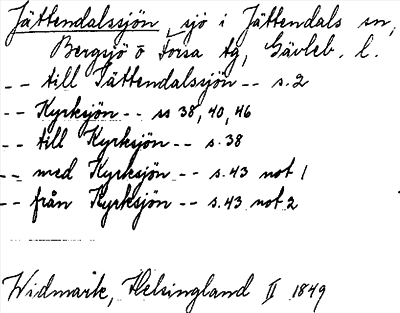 Jättendalssjön, sjö i Jättendals sn,
Bergsjö o Forsa tg, Gävleb. l.
-- till Jättendalssjön -- s. 2
-- Kyrksjön -- ss 38, 40, 46
-- till Kyrksjön -- s. 38
-- med Kyrksjön -- s. 43 not 1
-- från Kyrksjön -- s. 43 not 2
Widmark, Helsingland II 1849